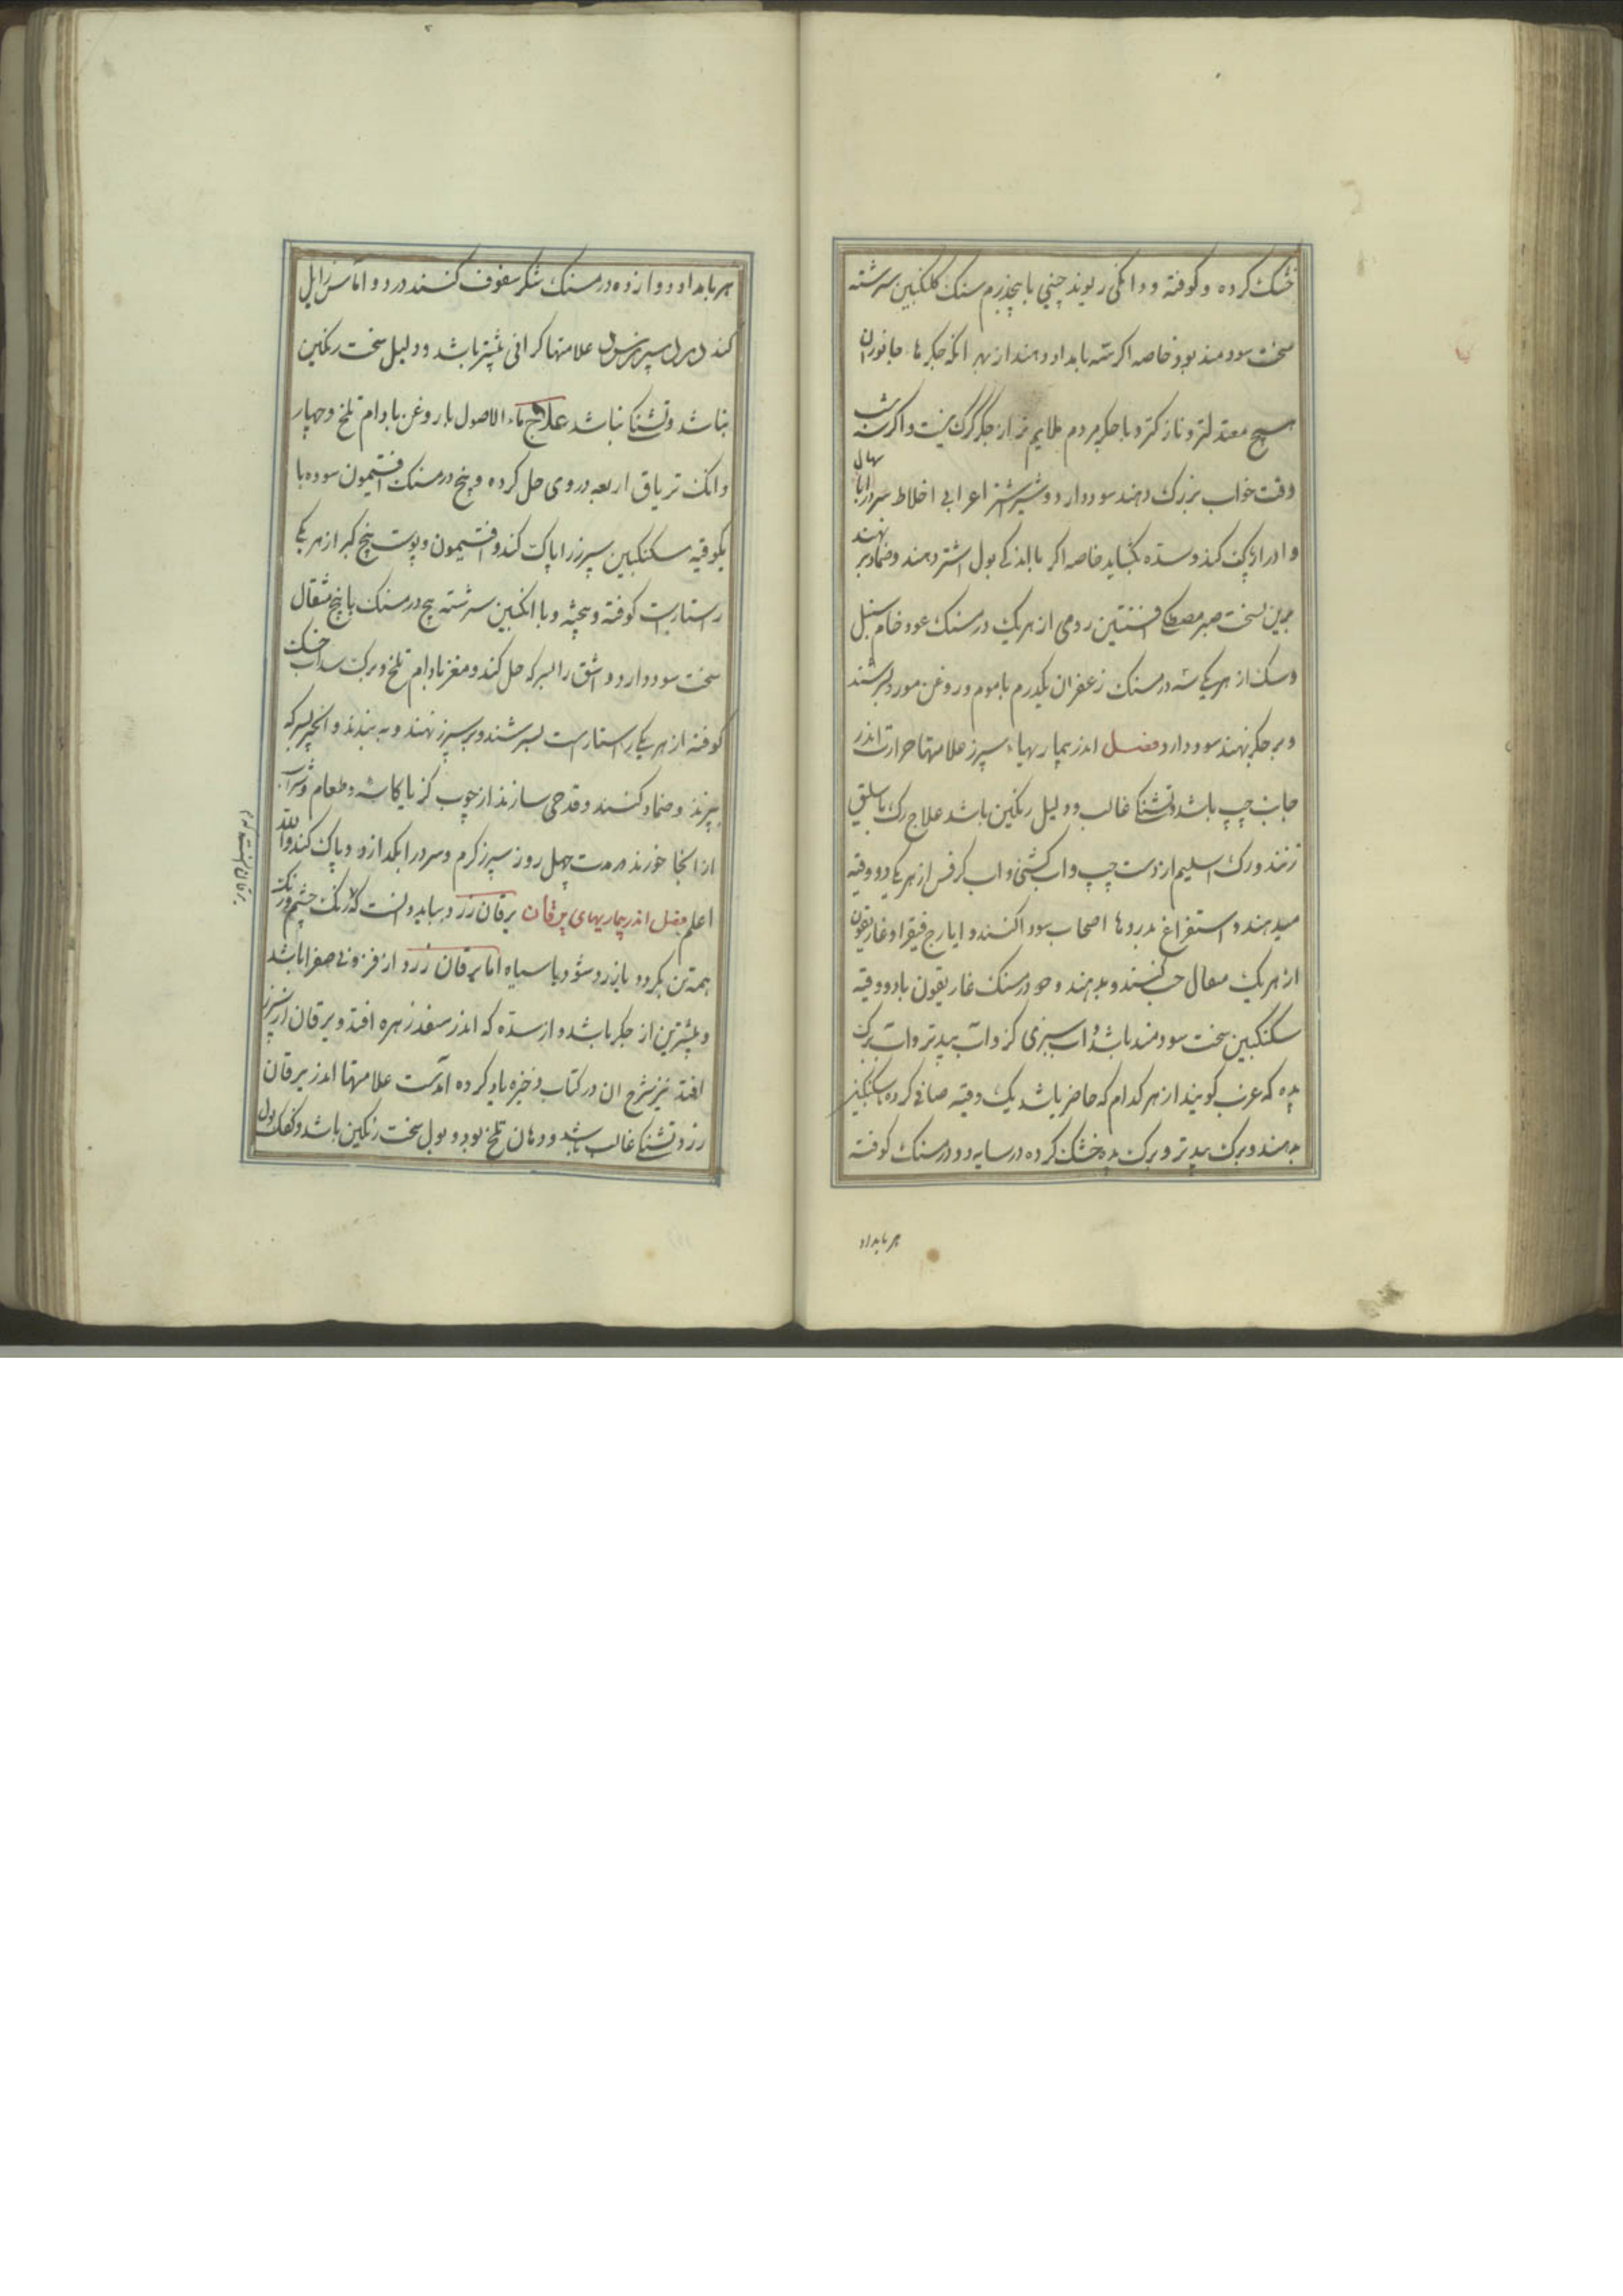 خشک کرده و کوفته و دانکی ریوند چینی با پنجدرم سنک کلنکبین سرشته
سخت سودمند بود خاصه اکر سه بامداد دهند از بهر انکه جکر ها جانوران
هیچ معتدلتر و نازکتر و با جکر مردم ملایم تر از جکر کرک نیست و اکر شب
وقت خواب بزرک دهند سود دارد و شیر اشتر اعرابی اخلاط سرد را باسهال
و ادرار پاک کند و سده بکشاید خاصه اکر با اندکی بول اشتر دهند و ضماد بر نهند
برین نسخت صبر مصطکی افسنتین رومی از هر یک درمسنک عود خام سنبل
و سک از هر یکی سه درمسنک زعفران یکدرم با موم و روغن مورد بسرشند
و بر جکر نهند سود دارد فصل اندر بیماریهاء سپرز علامتها حرارت اندر
جانب چپ باشد و تشنکی غالب و دلیل رنکین باشد علاج رک باسلیق
زنند و رک اسلیم از دست چپ و اب کشنی و اب کرفس از هر یکی دو وقیه
میدهند و استفراغ بدروها اصحاب سودا کنند و ایارج فیقرا و غاریقون
از هر یک مثقال حب کنند و بدهند و دو درمسنک غاریقون با دو وقیه
سکنکبین سخت سودمند باشد و اب سبزی کز و آب بید تر و آب برک
بده که عرب کویند از هر کدام که حاضر باشد یک وقیه صافی کرده با سکنکبین
بدهند و برک بید تر و برک بده خشک کرده در سایه دو درمسنک کوفته
هر بامداد
هر بامداد و دوازده درمسنک شکر سفوف کنند درد و اماس زایل
کند علامتها کرانی بیشتر باشد و دلیل سخت رنکین
نباشد و تشنکی نباشد علاج ماء الاصول با روغن بادام تلخ و چهار
دانک تریاق اربعه در وی حل کرده و پنج درمسنک افتیمون سوده با
یکوقیه سکنکبین سپرز را پاک کند و افتیمون و پوست بیخ کبر از هر یکی
راستاراست کوفته و بیخته و با انکبین سرشته پنج درمسنک با پنج مثقال
سخت سود دارد و اشق را بسرکه حل کند و مغز بادام تلخ و برک سداب خشک
کوفته از هر یکی راستاراست بسرشند و بر سپرز نهند و به بندند و انجیر بسرکه
بپزند و ضماد کنند و قدحی سازند از چوب کز یا کاسه و طعام و شراب
از انجا خورند مدت چهل روز سپرز کرم و سرد را بکدازد و پاک کند والله
اعلم فصل اندر بیماریهای یرقان یرقان زرد بباید دانست که رنک چشم و رنک
همه تن بکردد یا زرد شود یا سیاه اما یرقان زرد از فزونی صفرا باشد
و بیشترین از جکر باشد و از سده که اندر منفذ زهره افتد و یرقان از سپرز
افتد نیز شرح ان در کتاب ذخیره یاد کرده امدست علامتها اندر یرقان
زرد تشنکی غالب باشد و دهان تلخ بود و بول سخت رنکین باشد و کفک بول